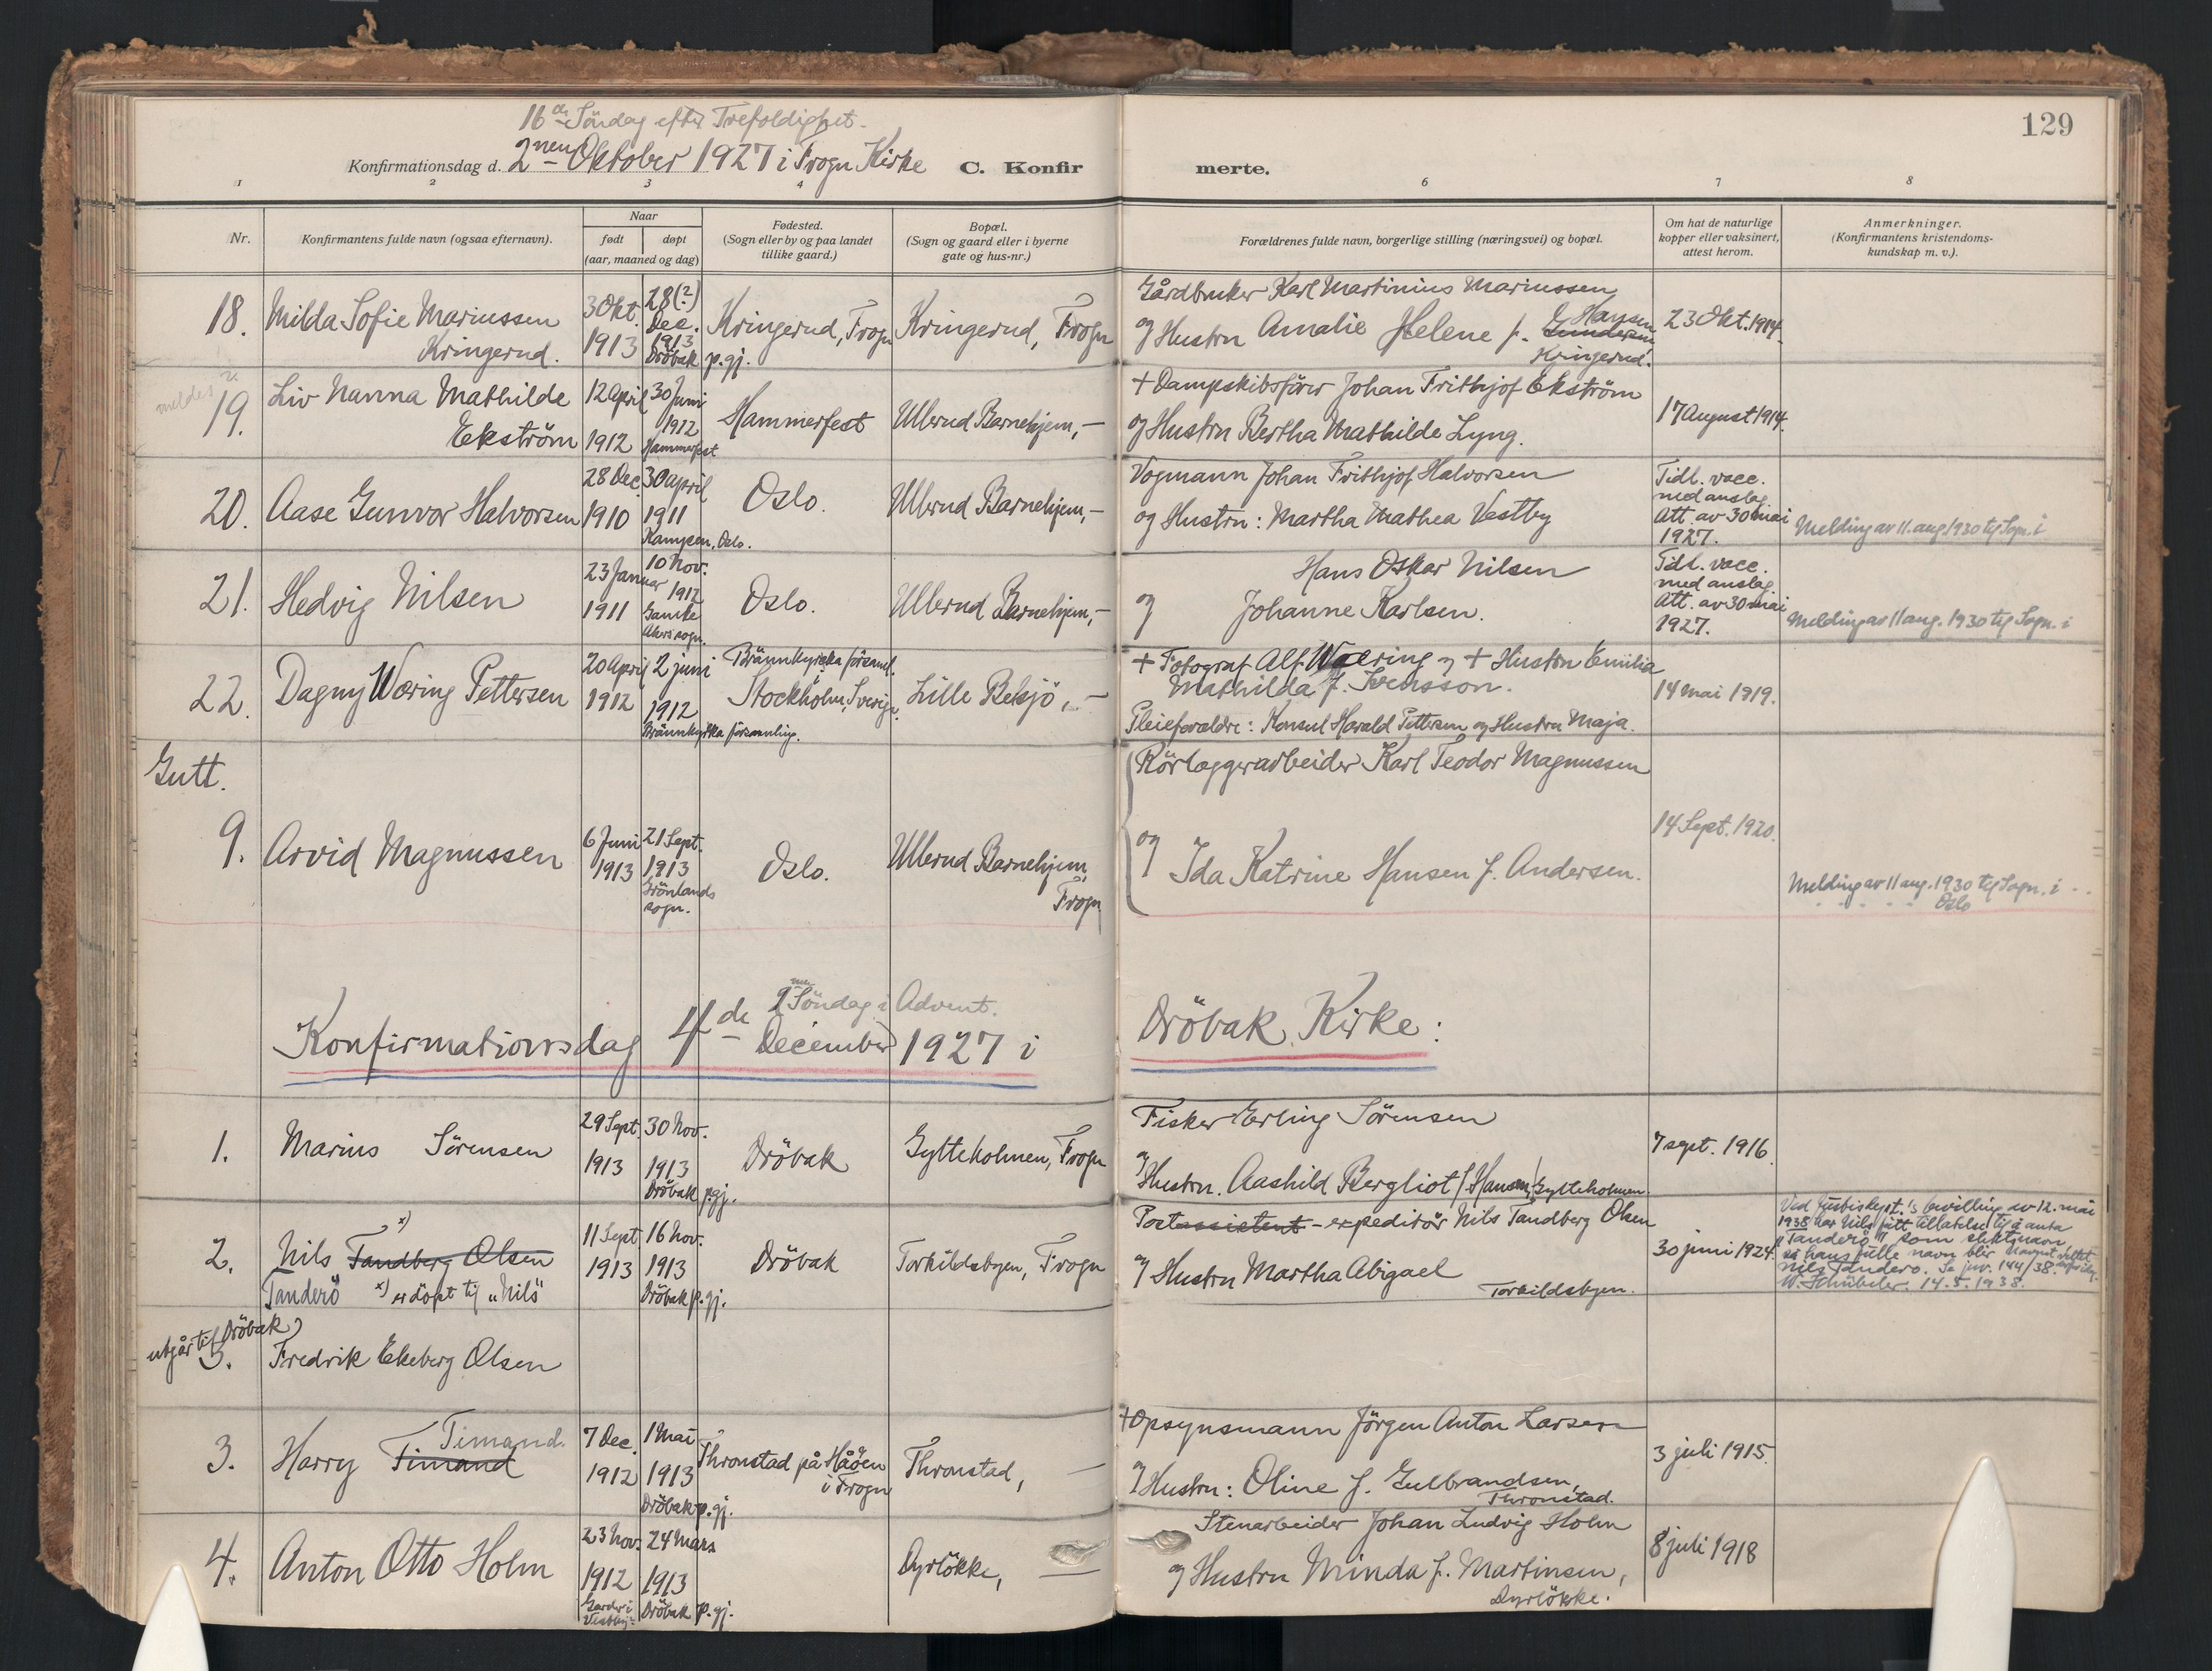 129
16de Söndag efter Trefoldighet.
Konfirmationsdag d. 2nen Oktober 1927 i Frogn Kirke C. Konfirmerte.
1 2 3 4 6 7 8
Nr.
Konfirmantens fulde navn (ogsaa efternavn).
Naar
født døpt
(aar, maaned og dag)
Fødested.
(Sogn eller by og paa landet
tillike gaard.)
Bopæl.
(Sogn og gaard eller i byerne
gate og hus-nr.)
Forældrenes fulde navn, borgerlige stilling (næringsvei) og bopæl.
Om hat de naturlige
kopper eller vaksinert,
attest herom.
Anmerkninger.
(Konfirmantens kristendoms-
kundskap m. v.).
18. Milda Sofie Mariussen
Kringerud.
3 Okt.
1913
28(?)
Dec.
1913
Dröbak p.gj.
Kringerud, Frogn
Kringerud, Frogn
Gårdbruker Karl Martinius Mariussen
og Hustru Amalie Helene f. Hansen
Gundersen
Kringerud.
23 Okt. 1914.
meldes
19. Liv Nanna Mathilde
Ekström
12 April
1912
30 Juni
1912
Hammerfest
Hammerfest
Ullerud Barnehjem, —
+ Dampskibsförer Johan Frithjof Ekström
og Hustru Bertha Mathilde Lyng.
17 August 1914.
20. Aase Gunvor Halvorsen
28 Dec.
1910
30 april
1911
Kampen, Oslo.
Oslo.
Ullerud Barnehjem, —
Vognmann Johan Frithjof Halvorsen
og Hustru: Martha Mathea Vestby
Tidl. vacc.
med anslag
Att. av 30 mai
1927.
Melding av 11. aug 1930 til Sogn. i
21. Hedvig Nilsen
23 Januar
1911
10 Nov.
1912
Gamle
Akers sogn.
Oslo.
Ullerud Barnehjem, —
Hans Oskar Nilsen
og Johanne Karlsen.
Tidl. vacc.
med anslag
Att. av 30 mai
1927.
Melding av 11 aug. 1930 til Sogn. i
22. Dagny Wæring Pettersen
20 April
1912
2 juni
1912
Brännkyrka församling.
Brännkyrka församl.
Stockholm, Sverige.
Lille Beksjö, —
+ Fotograf Alf Wæring og + Hustru Emilia
Mathilda f. Svensson.
Pleieforældre: Konsul Harald Pettersen og Hustru Maja.
14 mai 1919.
Gutt.
9. Arvid Magnussen
6 Juni
1913
21 Sept.
1913
Grönlands
sogn.
Oslo.
Ullerud Barnehjem,
Frogn
Rörlæggerarbeider Karl Teodor Magnussen
og Ida Katrine Hansen f. Andersen.
14 Sept. 1920.
Melding av 11 aug. 1930 til Sogn. i
Oslo
2nen Söndag i Advent.
Konfirmationsdag 4de December 1927 i Dröbak Kirke:
1. Marius Sörensen
29 Sept.
1913
30 Nov.
1913
Dröbak p.gj.
Dröbak
Gylteholmen, Frogn
Fisker Erling Sörensen
og Hustru. Aashild Bergliot f. Hansen, Gylteholmen.
7 sept. 1916.
2. Nils Tandberg Olsen x)
Tanderö x) er döpt til „Nils"
11 Sept
1913
16 Nov.
1913
Dröbak p.gj.
Dröbak
Torkildsbyen, Frogn
Postassistent - expeditör Nils Tandberg Olsen
og Hustru Martha Abigael
Torkildsbyen.
30 juni 1924.
Ved Justisdept.'s bevilling av 12. mai
1938 har Nils fått tillatelse til å anta
„Tanderö" som slektsnavn
så hans fulle navn blir
Nils Tanderö. Se jnr. 144/38.
W. Schübeler. 14.5.1938.
utgår til Dröbak
3. Fredrik Ekeberg Olsen
3. Harry Timand
Timand.
7 Dec.
1912
1 Mai
1913
Dröbak p.gj.
Thronstad på Håöen
i Frogn
Thronstad, —
+ Opsynsmann Jörgen Anton Larsen
og Hustru: Oline f. Gulbrandsen,
Thronstad.
3 juli 1915.
4. Anton Otto Holm
23 Nov.
1912
Garder i
Vestby
24 Mars
1913
Dröbak p.gj.
Dyrlökke, —
Stenarbeider Johan Ludvig Holm
og Hustru Minda f. Martinsen,
Dyrlökke.
8 juli 1918